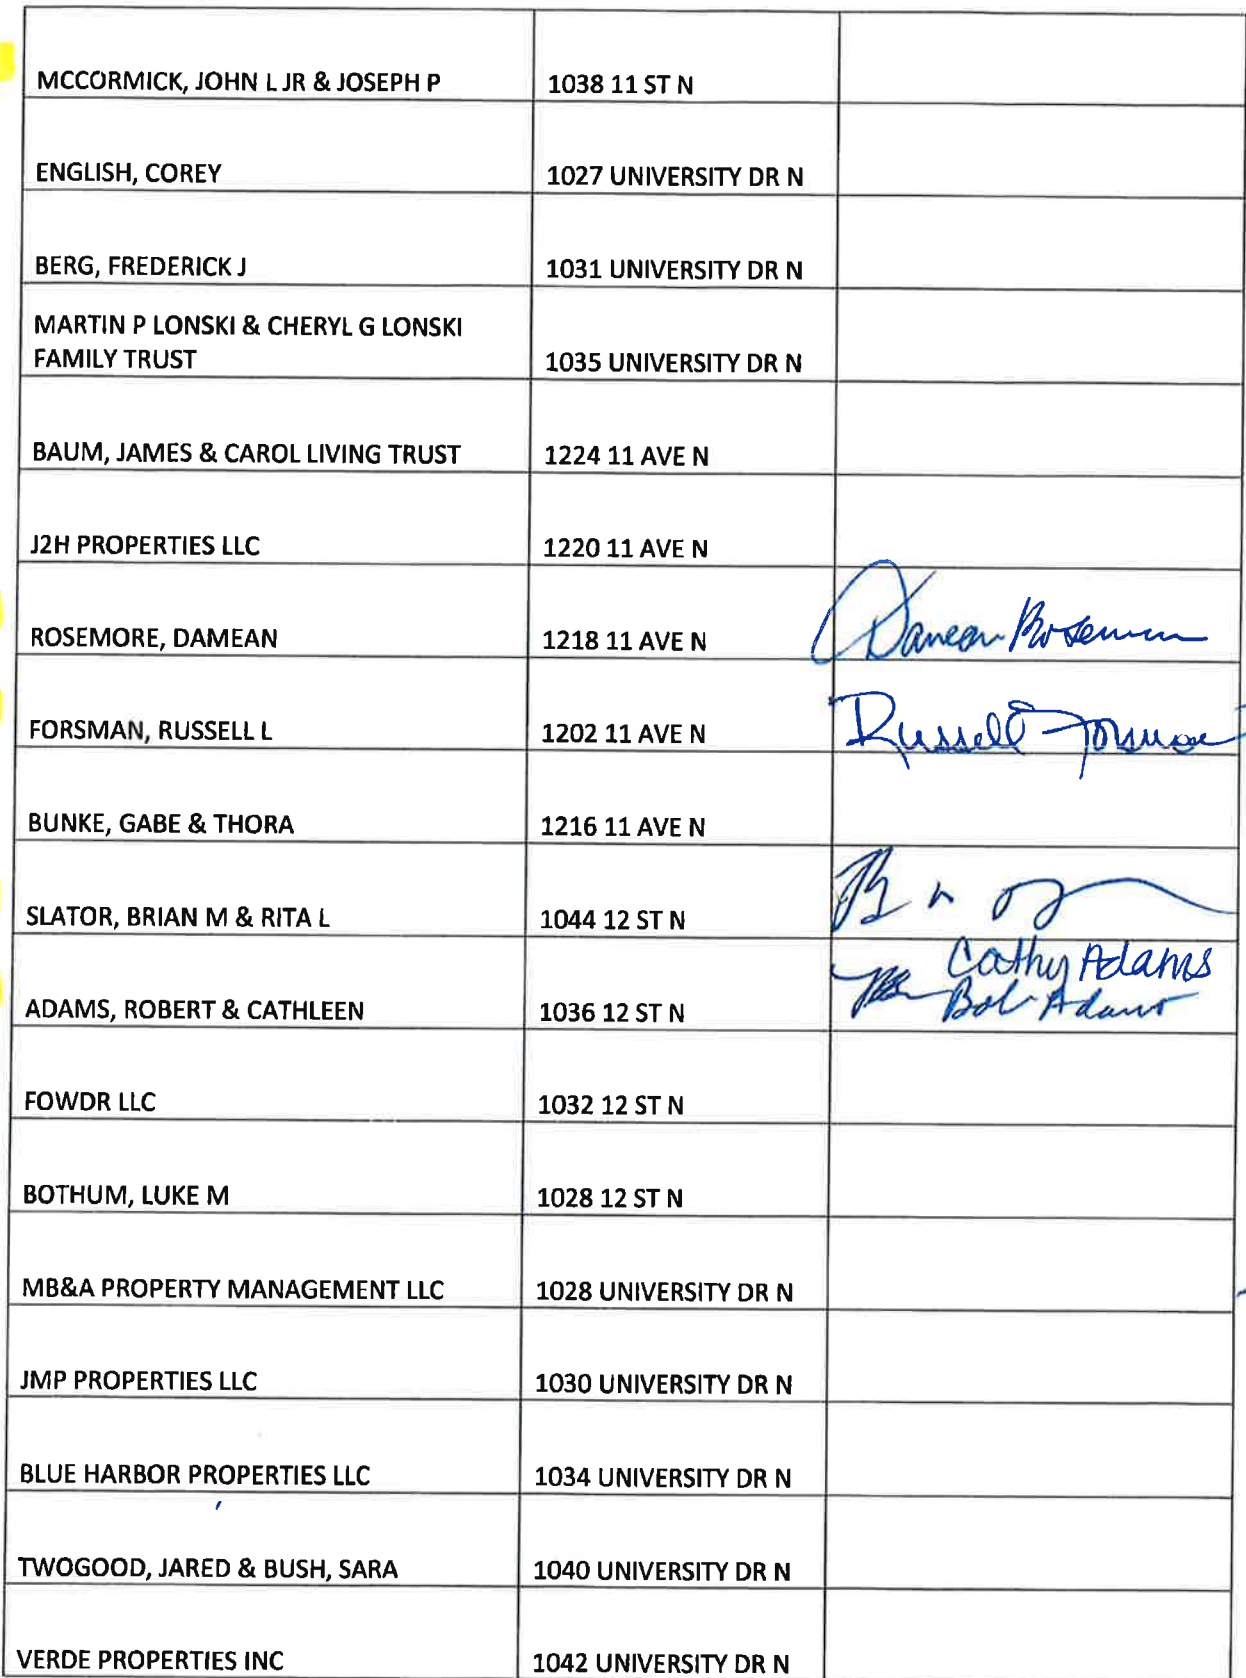 MCCORMICK, JOHN L JR & JOSEPH P 1038 11 ST N
ENGLISH, COREY 1027 UNIVERSITY DR N
BERG, FREDERICK J 1031 UNIVERSITY DR N
MARTIN P LONSKI & CHERYL G LONSKI
FAMILY TRUST 1035 UNIVERSITY DR N
BAUM, JAMES & CAROL LIVING TRUST 1224 11 AVE N
J2H PROPERTIES LLC 1220 11 AVE N
ROSEMORE, DAMEAN 1218 11 AVE N Damean
FORSMAN, RUSSELL L 1202 11 AVE N Russell Forsman
BUNKE, GABE & THORA 1216 11 AVE N
SLATOR, BRIAN M & RITA L 1044 12 ST N
Cathy Adams
ADAMS, ROBERT & CATHLEEN 1036 12 ST N Bob Adams
FOWDR LLC 1032 12 ST N
BOTHUM, LUKE M 1028 12 ST N
MB&A PROPERTY MANAGEMENT LLC 1028 UNIVERSITY DR N
JMP PROPERTIES LLC 1030 UNIVERSITY DR N
BLUE HARBOR PROPERTIES LLC 1034 UNIVERSITY DR N
TWOGOOD, JARED & BUSH, SARA 1040 UNIVERSITY DR N
VERDE PROPERTIES INC 1042 UNIVERSITY DR N